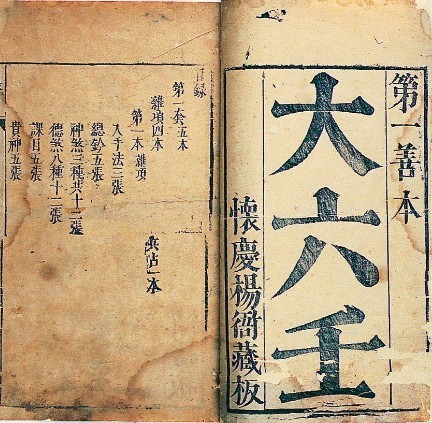 第一善本
大六壬
懷慶楊衙藏板
目録
第一套五本
雜項四本 兵占一本
第一本 雜項
入手法三張
總鈐五張
神煞三種共十二張
德煞八種十二張
課目五張
貴神五張